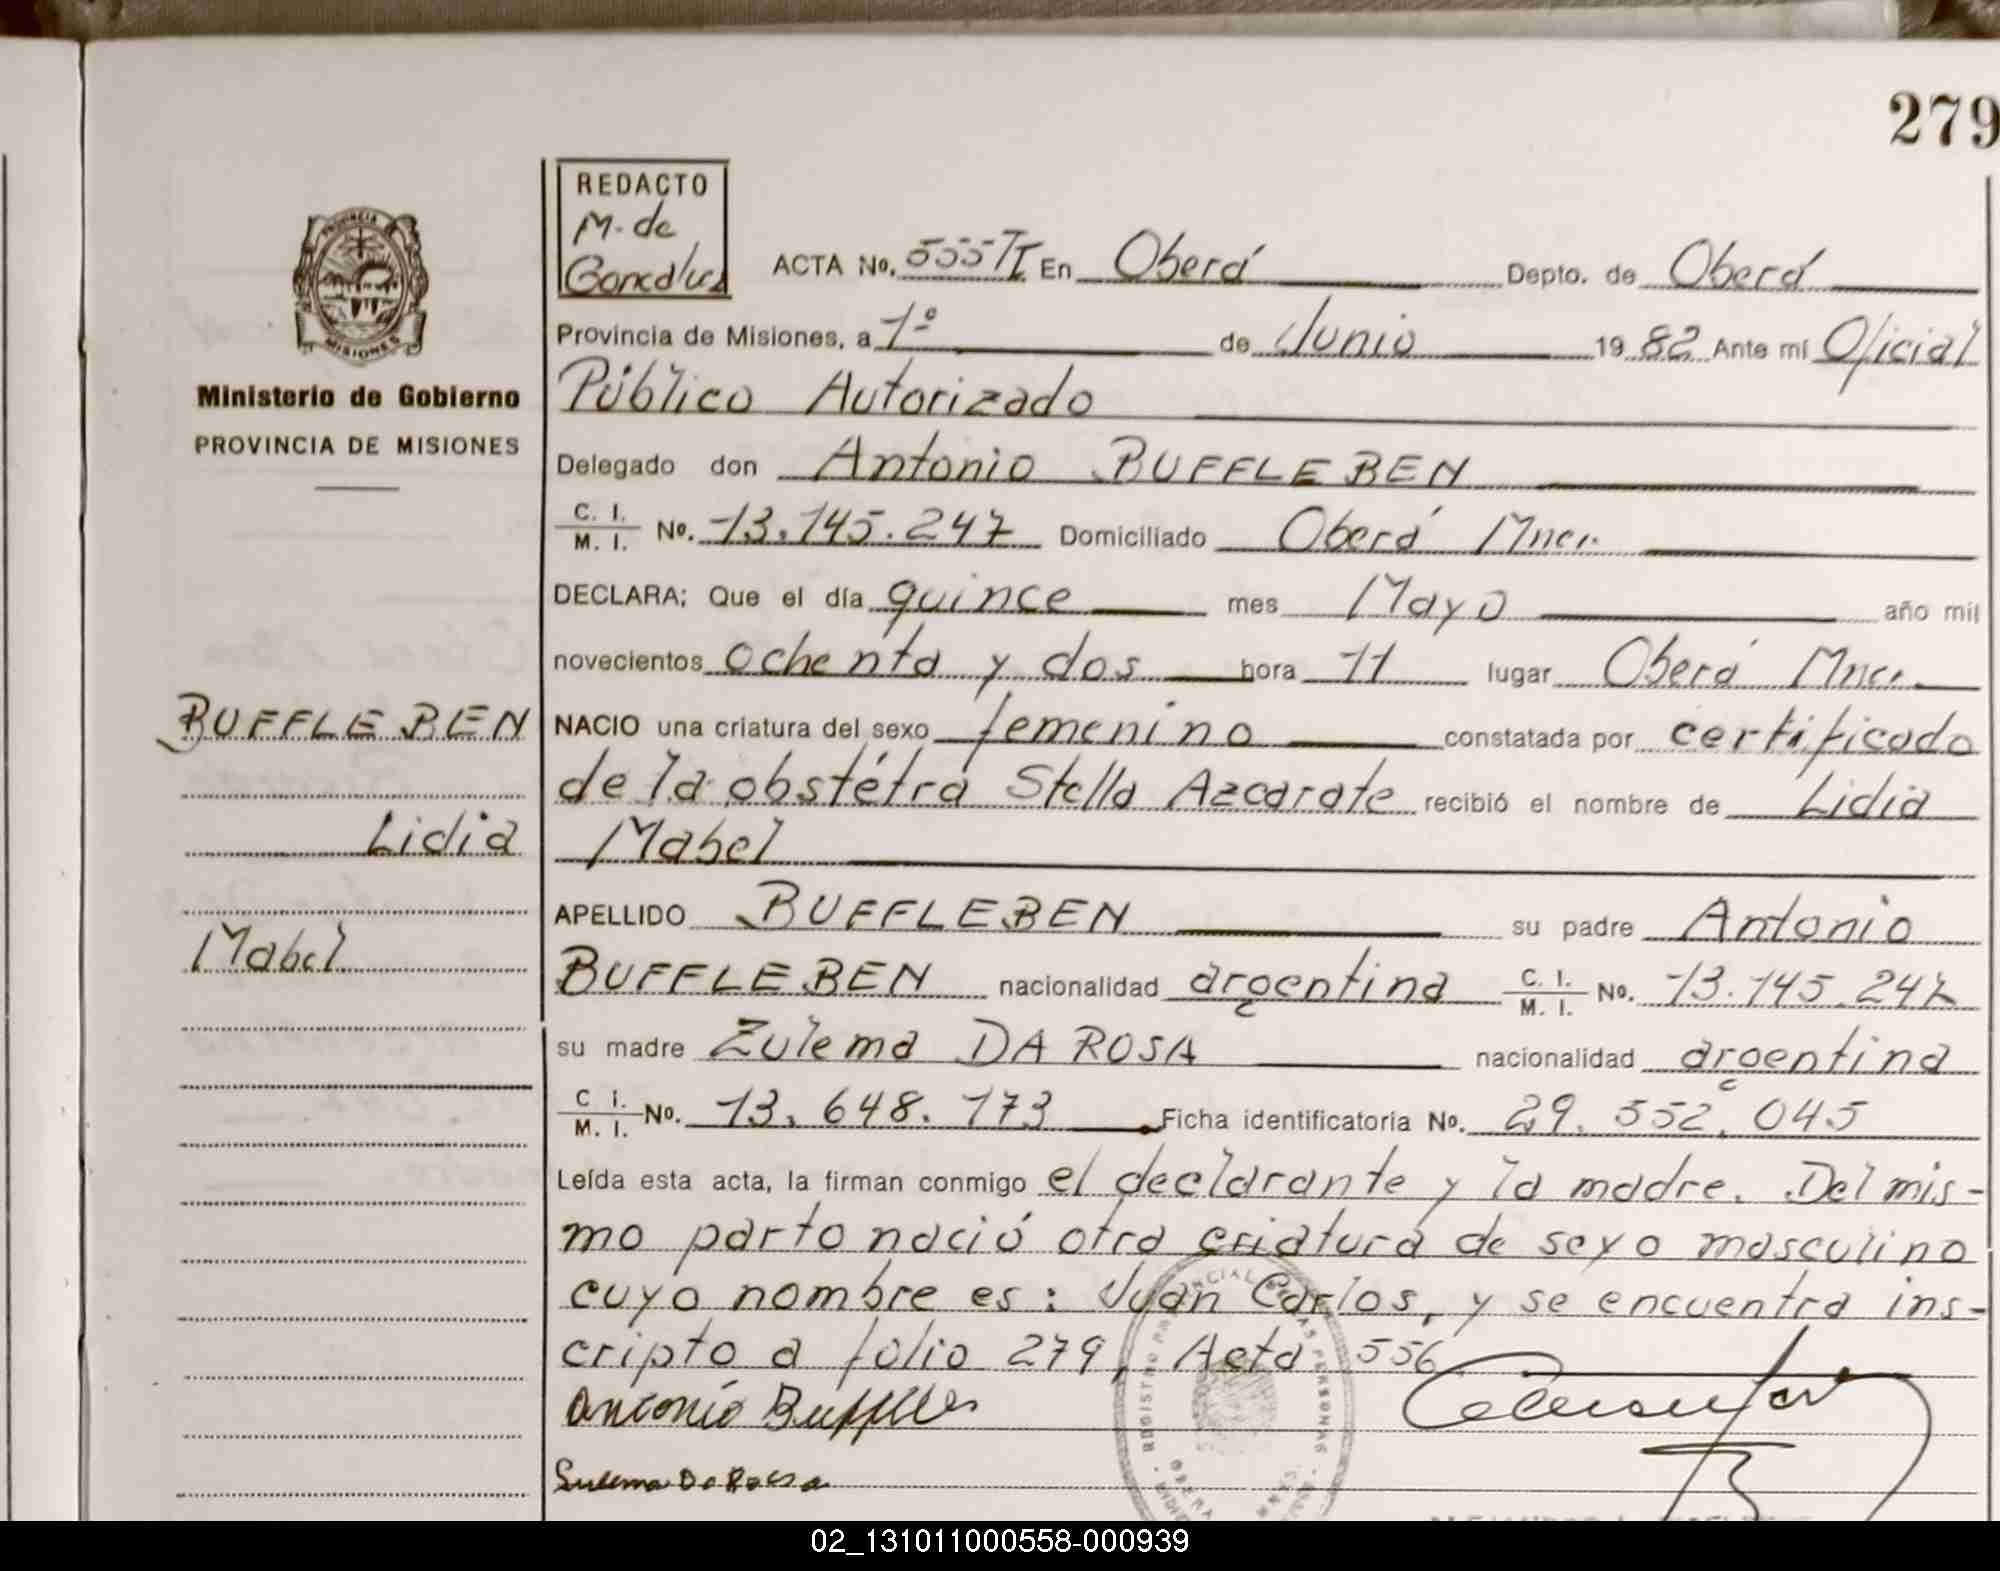 279
REDACTO
M. de
PROVINCIA
MISIONES
ACTA No. 555 TI En Oberá Depto. de Oberá
Provincia de Misiones, a 1º de Junio 1982 Ante mí Oficial
Ministerio de Gobierno
PROVINCIA DE MISIONES
Público Autorizado
Delegado don Antonio BUFFLEBEN
C. I. / M. I. No. 13.145.247 Domiciliado Oberá Mnes.
DECLARA: Que el día quince mes Mayo año mil
novecientos ochenta y dos hora 11 lugar Oberá Mnes.
BUFFLEBEN
NACIO una criatura del sexo femenino constatada por certificado
de la obstétra Stella Azcarate recibió el nombre de Lidia
Lidia
Mabel
APELLIDO BUFFLEBEN su padre Antonio
Mabel
BUFFLEBEN nacionalidad argentina C. I. / M. I. No. 13.145.247
su madre Zulema DA ROSA nacionalidad argentina
C I. / M. I. No. 13.648.173 Ficha identificatoria No. 29.552.045
Leída esta acta, la firman conmigo el declarante y la madre. Del mis-
mo parto nació otra criatura de sexo masculino
cuyo nombre es: Juan Carlos, y se encuentra ins-
cripto a folio 279, Acta 556
Antonio Buffleben
Sulema Da Rosa
02_131011000558-000939